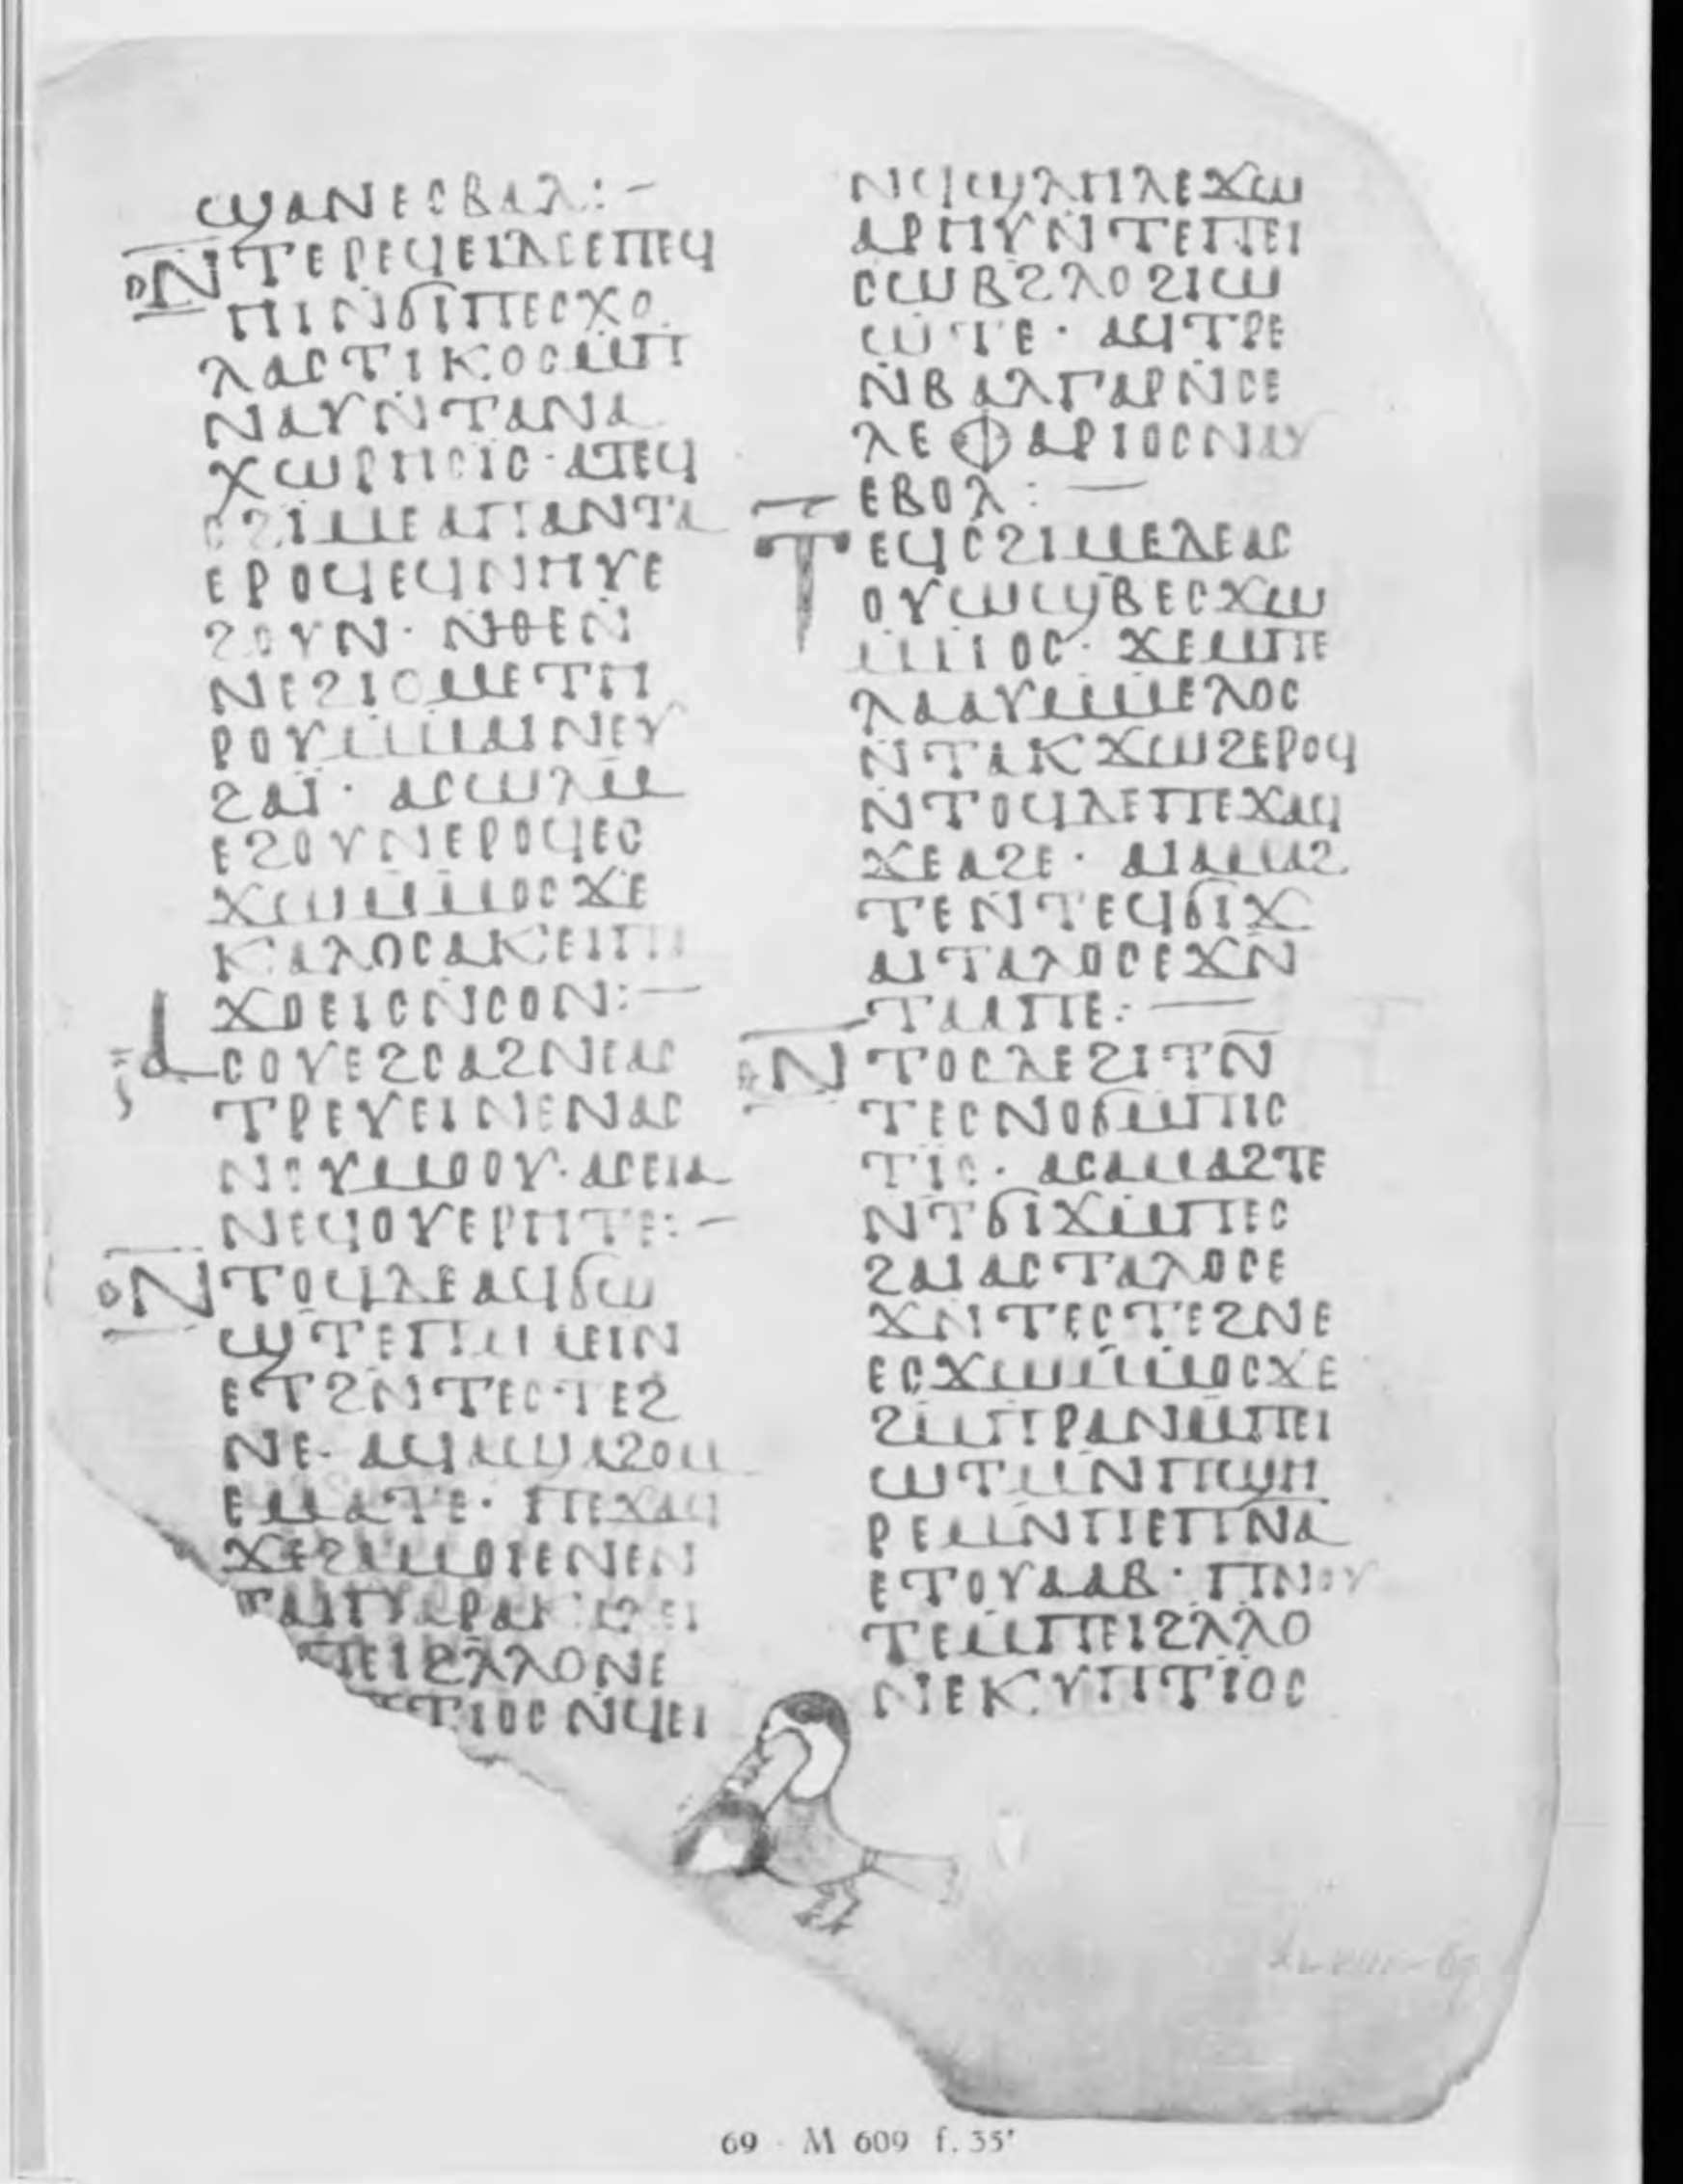 ϣⲁⲛⲉⲥⲃⲁⲗ:—
ⲛⲧⲉⲣⲉϥⲉⲓⲇⲉⲉⲡⲉϥ
ⲏⲓⲛϭⲓⲡⲉⲥⲭⲟ
ⲗⲁⲥⲧⲓⲕⲟⲥⲙⲡ
ⲛⲁⲩⲛⲧⲁⲛⲁ
ⲭⲱⲣⲏⲥⲓⲥ·ⲁⲧⲉϥ
ⲥϩⲓⲙⲉⲁⲡⲁⲛⲧⲁ
ⲉⲣⲟϥⲉϥⲛⲏⲩⲉ
ϩⲟⲩⲛ·ⲛⲑⲉⲛ
ⲛⲉϩⲓⲟⲙⲉⲧⲏ
ⲣⲟⲩⲙⲙⲁⲓⲛⲉⲩ
ϩⲁⲓ̈·ⲁⲥⲱⲗⲙ
ⲉϩⲟⲩⲛⲉⲣⲟϥⲉⲥ
ϫⲱⲙⲙⲟⲥϫⲉ
ⲕⲁⲗⲟⲥⲁⲕⲉⲓⲡⲁ
ϫⲟⲉⲓⲥⲛⲥⲟⲛ:—
ⲁⲥⲟⲩⲉϩⲥⲁϩⲛⲉⲁⲥ
ⲧⲣⲉⲩⲉⲓⲛⲉⲛⲁⲥ
ⲛⲟⲩⲙⲟⲟⲩ·ⲁⲥⲉⲓⲁ
ⲛⲉϥⲟⲩⲉⲣⲏⲧⲉ:—
ⲛⲧⲟϥⲇⲉⲁϥϭⲱ
ϣⲧⲉⲡⲙⲁⲉⲓⲛ
ⲉⲧϩⲛⲧⲉⲥⲧⲉϩ
ⲛⲉ·ⲁϥⲁϣⲁϩⲟⲙ
ⲉⲙⲁⲧⲉ·ⲡⲉϫⲁϥ
ϫⲉϩⲁⲙⲟⲓⲉⲛⲉⲛ
ⲡⲉⲓϩⲗⲗⲟⲛⲉ
ⲧⲓⲟⲥⲛϥⲉⲓ
ⲛϥϣⲗⲏⲗⲉϫⲱ
ⲁⲣⲏⲩⲛⲧⲉⲡⲉⲓ
ⲥⲱⲃϩⲗⲟϩⲓⲱ
ⲱⲧⲉ·ⲁϥⲧⲣⲉ
ⲛⲃⲁⲗⲅⲁⲣⲛⲥⲉ
ⲗⲉⲫⲁⲣⲓⲟⲥⲛⲁⲩ
ⲉⲃⲟⲗ:—
ⲧⲉϥⲥϩⲓⲙⲉⲇⲉⲁⲥ
ⲟⲩⲱϣⲃⲉⲥϫⲱ
ⲙⲙⲟⲥ·ϫⲉⲙⲡⲉ
ⲗⲁⲁⲩⲙⲙⲉⲗⲟⲥ
ⲛⲧⲁⲕϫⲱϩⲉⲣⲟϥ
ⲛⲧⲟϥⲇⲉⲡⲉϫⲁϥ
ϫⲉⲁϩⲉ·ⲁⲓⲁⲙⲁϩ
ⲧⲉⲛⲧⲉϥϭⲓϫ
ⲁⲓⲧⲁⲗⲟⲥⲉϫⲛ
ⲧⲁⲁⲡⲉ:—
ⲛⲧⲟⲥⲇⲉϩⲓⲧⲛ
ⲧⲉⲥⲛⲟϭⲙⲡⲓⲥ
ⲧⲓⲥ·ⲁⲥⲁⲙⲁϩⲧⲉ
ⲛⲧϭⲓϫⲙⲡⲉⲥ
ϩⲁⲓⲁⲥⲧⲁⲗⲟⲥⲉ
ϫⲛⲧⲉⲥⲧⲉϩⲛⲉ
ⲉⲥϫⲱⲙⲙⲟⲥϫⲉ
ϩⲙⲡⲣⲁⲛⲙⲡⲉⲓ
ⲱⲧⲙⲛⲡϣⲏ
ⲣⲉⲙⲛⲡⲉⲡⲛⲁ
ⲉⲧⲟⲩⲁⲁⲃ·ⲡⲛⲟⲩ
ⲧⲉⲙⲡⲉⲓϩⲗⲗⲟ
ⲛⲉⲕⲩⲡⲧⲓⲟⲥ
69 · M 609 f. 35'